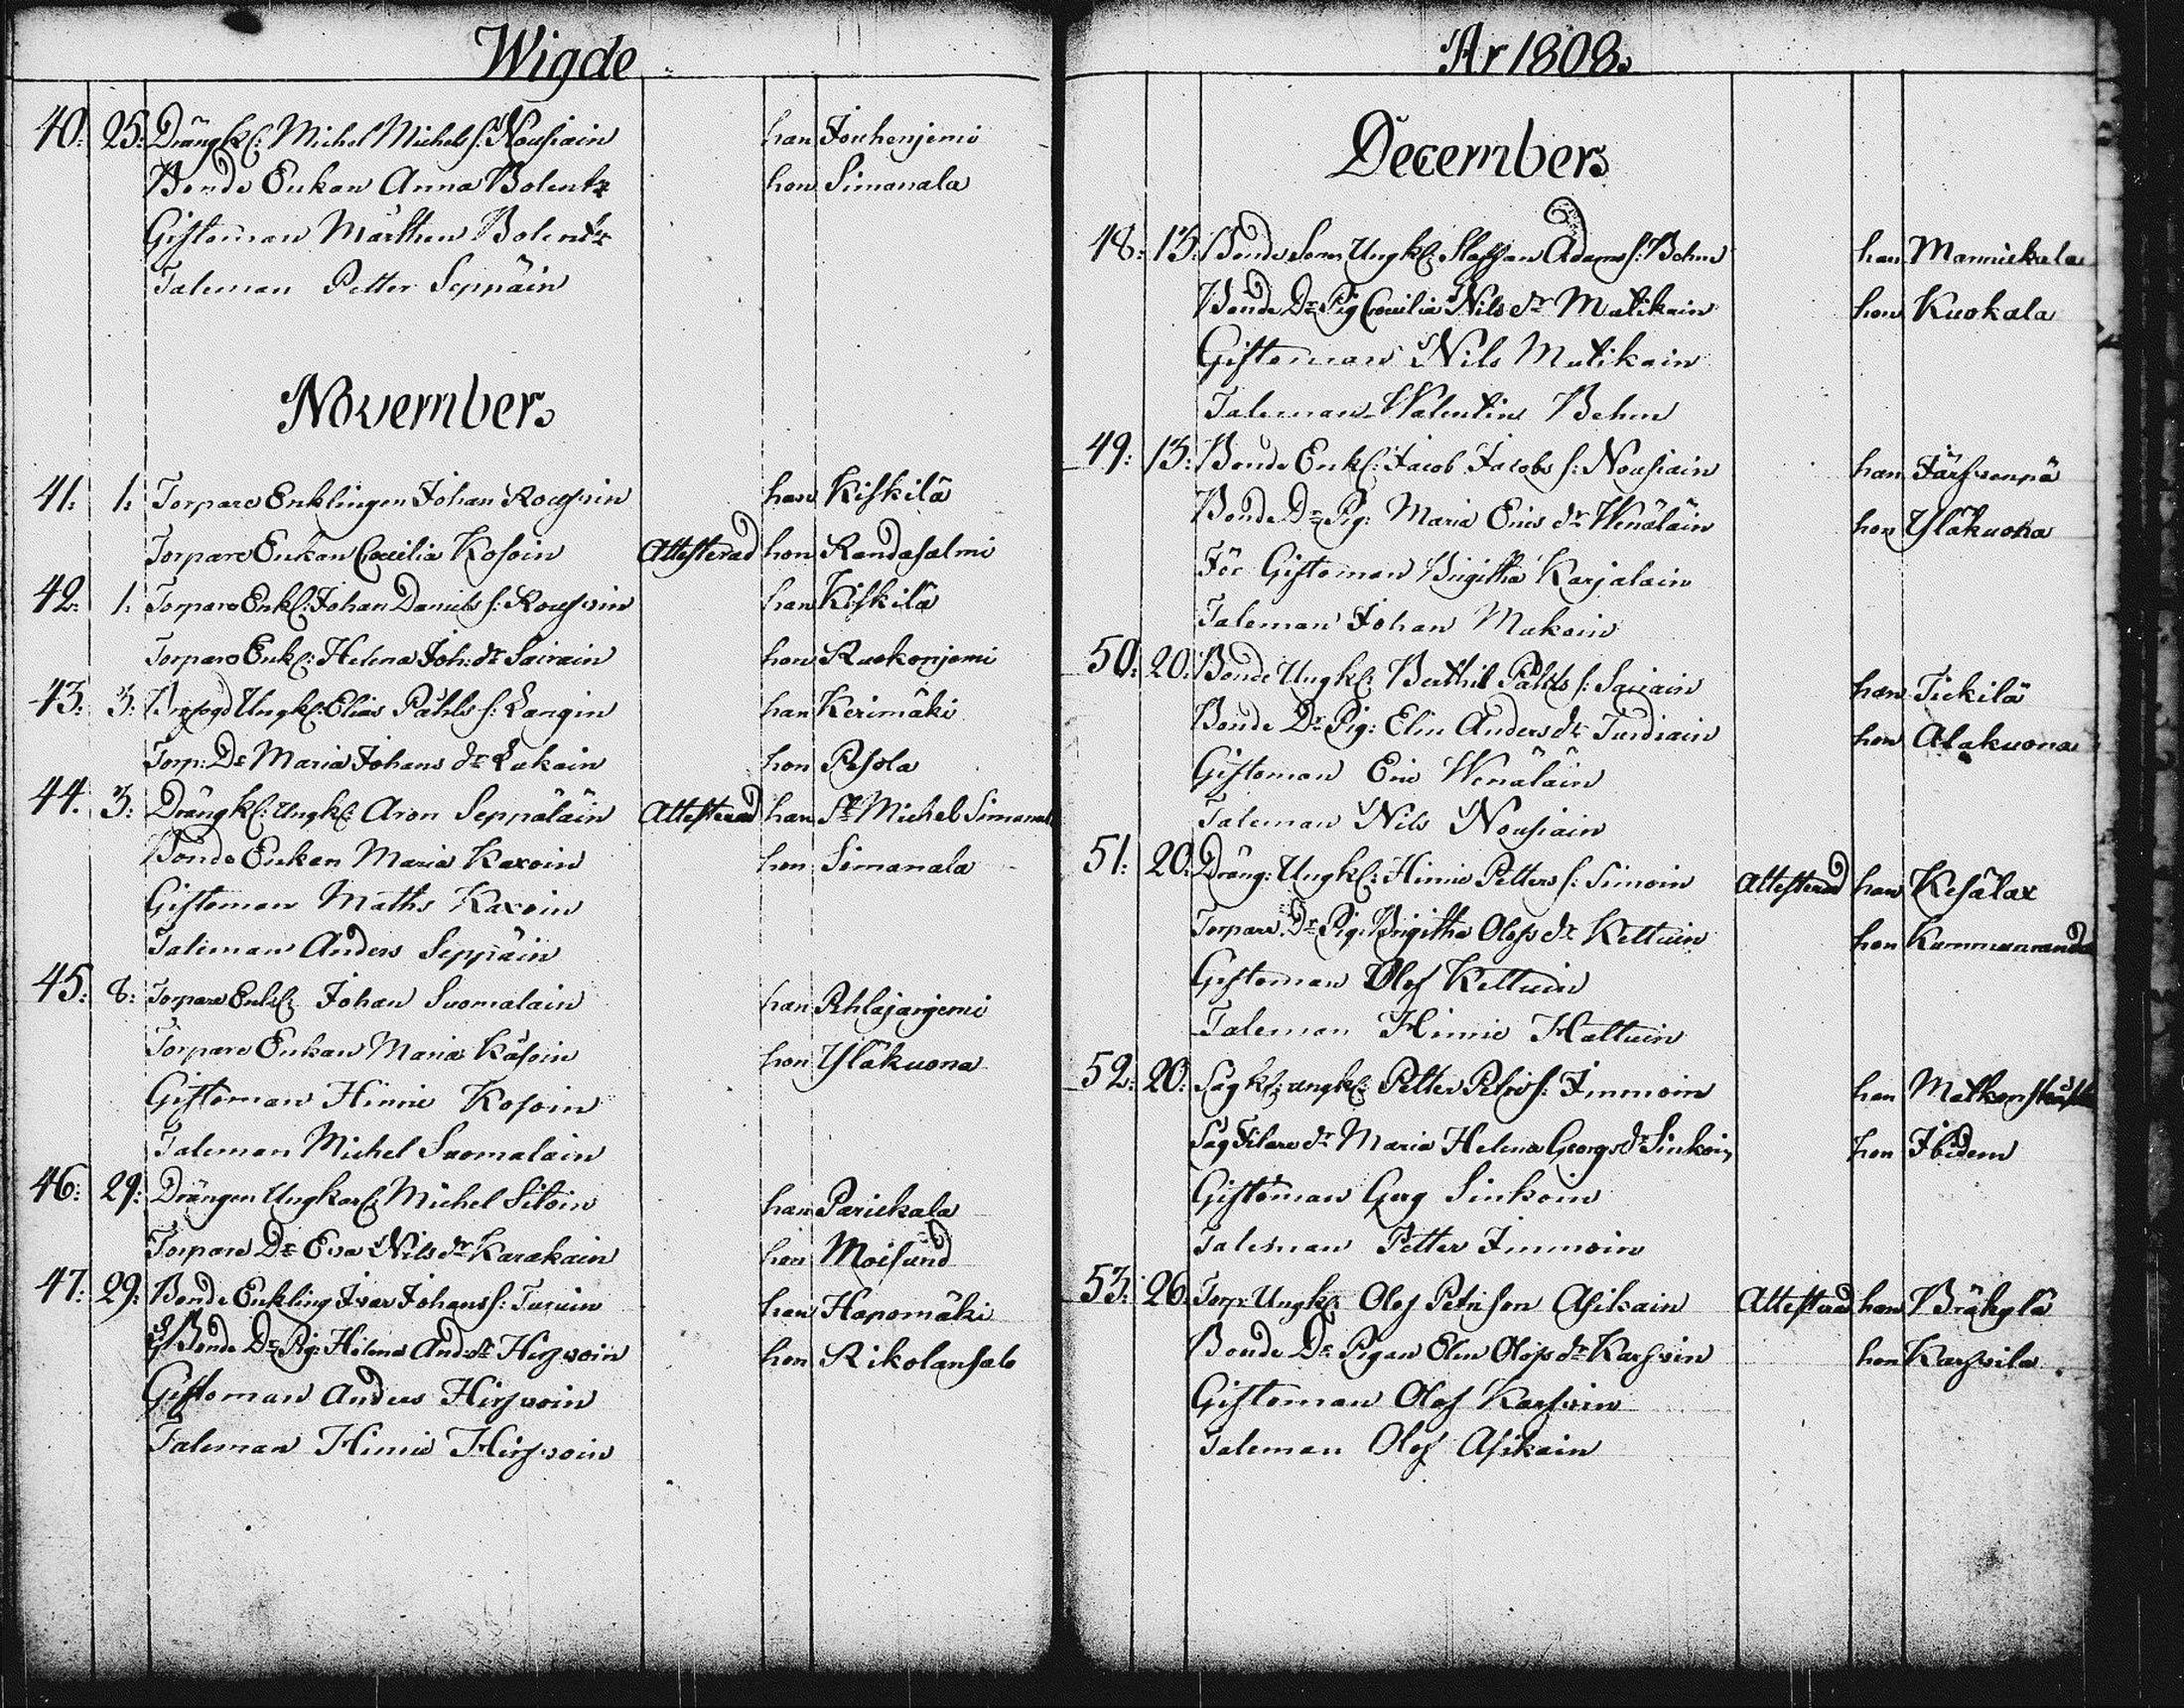 Wigde
40: 25: Drängk: Michel Michels s: Nousiain han Jouhenjemi
Bonde Enkan Anna Bolentz hon Simanala
Giftoman Mårthen Bolentz
Taleman Petter Seppäin
November
41: 1: Torpare Enklingen Johan Rouswin han Kiskilä
Torpare Enkan Cæcilia Kosoin Attesterad hon Randasalmi
42: 1: Torpare Enkl: Johan Daniels s: Rouswin han Kiskilä
Torpare Enk: Helena Joh: dr Sairain hon Ruokonjemi
43: 3: Ungk: Elias Påhls s: Langin han Kerimäki
Torp: Dr Maria Johans dr Lukain hon Pesola
44. 3: Drängk: Ungk: Aron Seppäläin Attesterad han St Michel Simanala
Bonde Enkan Maria Kaxoin hon Simanala
Giftoman Maths Kaxoin
Taleman Anders Seppäin
45: 8: Torpare Enkl: Johan Suomalain han Pihlajanjemi
Torpare Enkan Maria Käsoin hon Yläkuona
Giftoman Hinric Kosoin
Taleman Michel Suomalain
46: 29: Drängen Ungkarl: Michel Sitoin han Parickala
Torpare Dr Eva Nils dr Karakain hon Moisund
47: 29: Bonde Enkling Ivar Johans s: Turuin han Hapomäki
Bonde Dr Pig: Helena And: dr Hirswoin hon Rikolansalo
Giftoman Anders Hirswoin
Taleman Hinric Hirswoin
År 1808.
December
48: 13: Bonde Sonen Ungk: Staffan Adams s: Behm han Mannickala
Bonde Dr Pig Cæcilia Nils dr Mutikain hon Kuokala
Giftoman Nils Mutikain
Taleman Walentin Behm
49: 13: Bonde Enkl: Jacob Jacobs s: Nousiain han Järfwenpä
Bonde Dr Pig: Maria Erics dr Wenäläin hon Yläkuona
För Giftoman Brigitha Karjalain
Taleman Johan Makoin
50: 20: Bonde Ungk: Berthil Påhls s: Sairain han Tickilä
Bonde Dr Pig: Elin Anders dr Turdiain hon Alakuona
Giftoman Eric Wenäläin
Taleman Nils Nousiain
51: 20: Dräng: Ungk: Hinric Petters s: Simoin Attesterad han Kesälax
Torpare Dr Pig: Brigitha Olofs dr Kettuin hon Kummunranda
Giftoman Olof Kettuin
Taleman Hinric Hattuin
52: 20: Sågk: ungk: Petter Petri s: Immoin han
Såg Filare dr Maria Helena Georgs dr Sinkoin hon Ibidem
Giftoman Georg Sinkoin
Taleman Petter Immoin
53: 26 Torp: Ungk: Olof Petri son Asikain Attesterad han Bräkylä
Bonde Dr Pigan Elin Olofs dr Karswin hon Karswila
Giftoman Olof Karswin
Taleman Olof Asikain